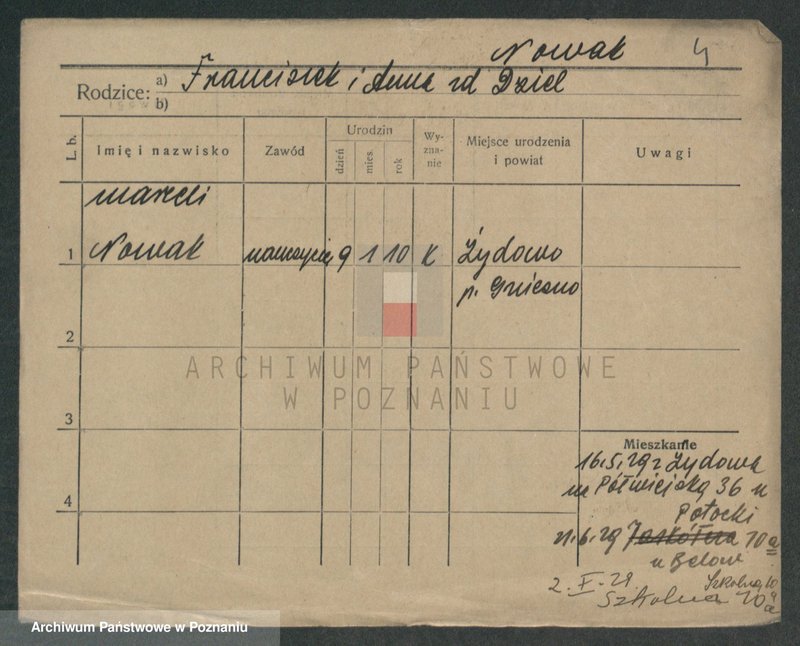 Nowak 4
Rodzice: a) Franciszek i Anna zd Dziel
b)
L. b.
Imię i nazwisko
Zawód
Urodzin
dzień
mies.
rok
Wy-
zna-
nie
Miejsce urodzenia
i powiat
Uwagi
Marceli
1 Nowak nauczyciel 9 1 10 K Żydowo
p. Gniezno
2
ARCHIWUM PAŃSTWOWE
W POZNANIU
3
Mieszkanie
16.5.29 z Żydowa
na Półwiejską 36 u
Potocki
4
21.6.29 Jaskółcza 10a
u Below
2.X.29. Szkolna 10
Szkolna 10a
Archiwum Państwowe w Poznaniu